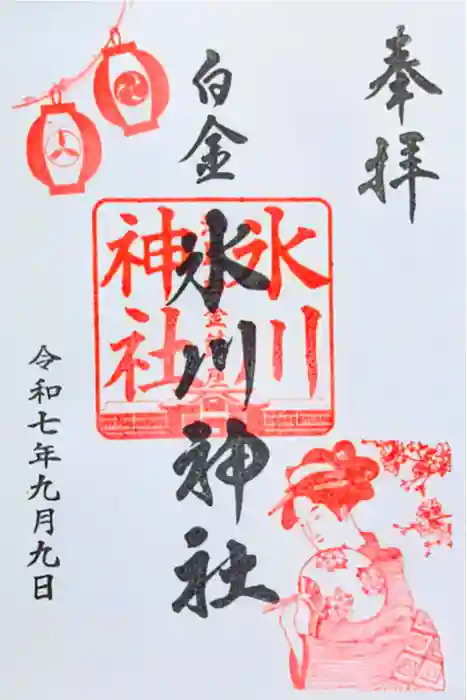 奉拝
白金
氷川神社
氷川
神社
令和七年九月九日